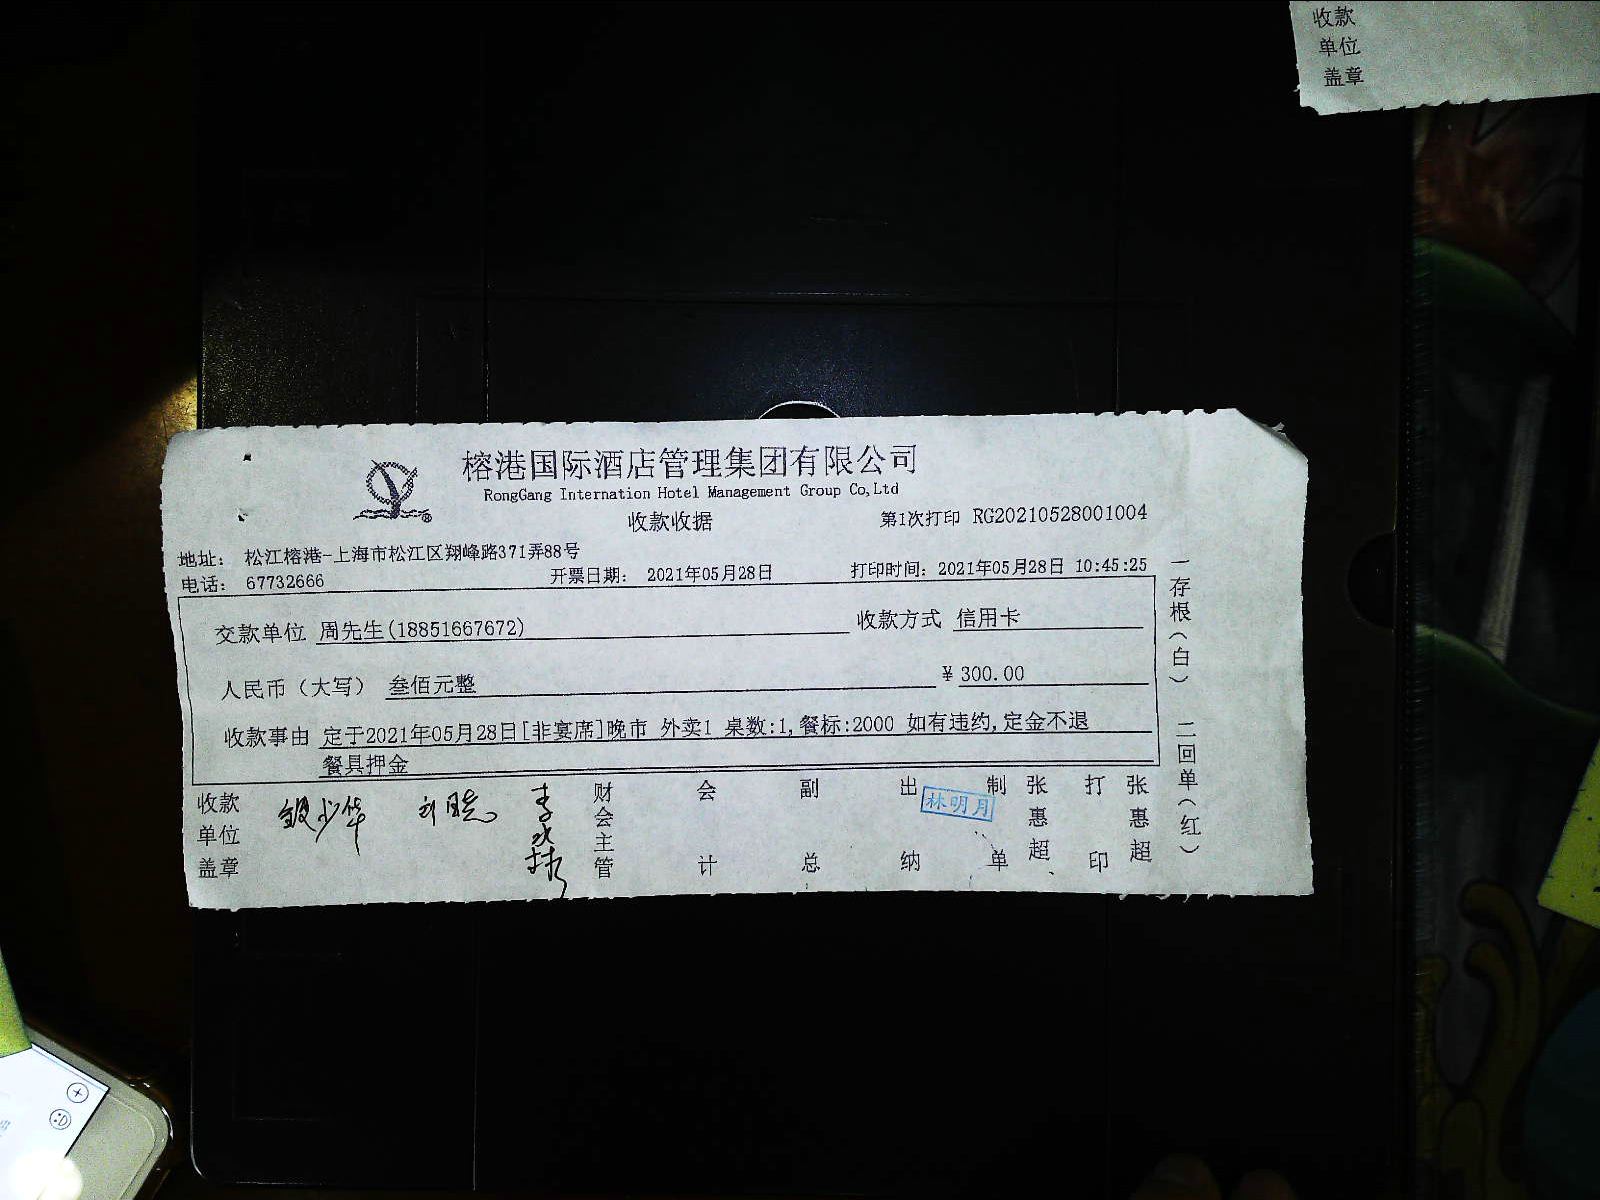 收款
单位
盖章
榕港国际酒店管理集团有限公司
RongGang Internation Hotel Management Group Co,Ltd
收款收据
第1次打印 RG20210528001004
地址: 松江榕港-上海市松江区翔峰路371弄88号
电话: 67732666
开票日期: 2021年05月28日
打印时间: 2021年05月28日 10:45:25
交款单位 周先生(18851667672)
收款方式 信用卡
人民币（大写） 叁佰元整
¥ 300.00
收款事由 定于2021年05月28日[非宴席]晚市 外卖1 桌数:1,餐标:2000 如有违约,定金不退
餐具押金
收款
单位
盖章
财会主管
会计
副总
出纳
林明月
制单
张惠超
打印
张惠超
一存根(白)
二回单(红)